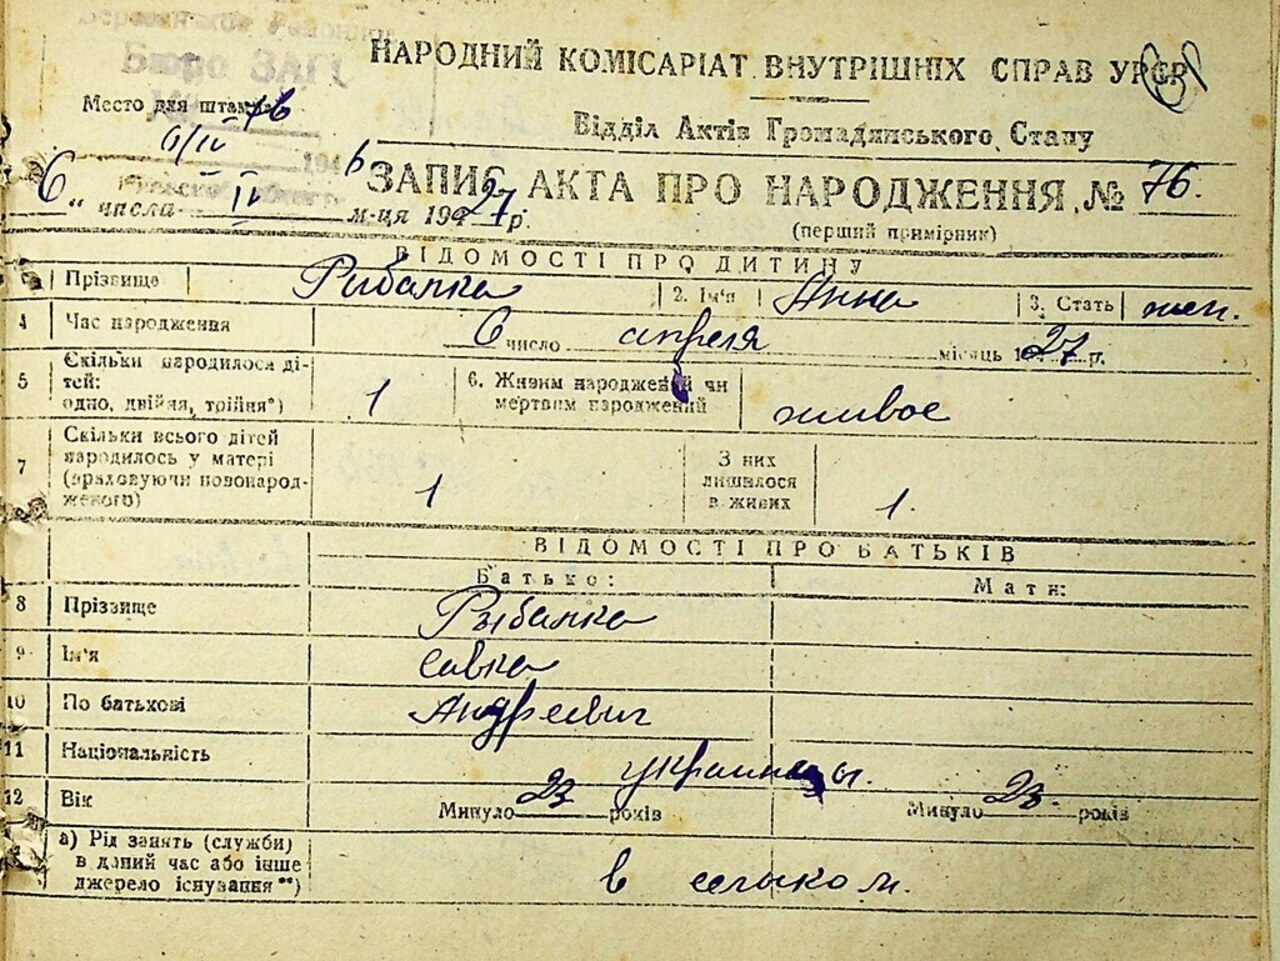 Бюро ЗАГС
НАРОДНИЙ КОМІСАРІАТ ВНУТРІШНІХ СПРАВ УРСР
Место для штампа 76
Відділ Актів Громадянського Стану
6/IV 194 6
ЗАПИС АКТА ПРО НАРОДЖЕННЯ № 76.
6 " числа IV м-ця 1927 р.
(перший примірник)
ВІДОМОСТІ ПРО ДИТИНУ
Прізвище Рибалка 2. Ім'я Анна 3. Стать жен.
4 Час народження 6 число апреля місяць 1927 р.
5 Скільки народилося дітей: одно, двійня, трійня*) 1 6. Живим народжений чи мертвим народжений живое
7 Скільки всього дітей народилось у матері (враховуючи новонародженого) 1 З них лишилося в живих 1.
ВІДОМОСТІ ПРО БАТЬКІВ
Батько: Мати:
8 Прізвище Рыбалка
9 Ім'я Савка
10 По батькові Андреевич
11 Національність украинцы.
12 Вік Минуло 23 років Минуло 23 років
а) Рід занять (служби) в даний час або інше джерело існування**) в